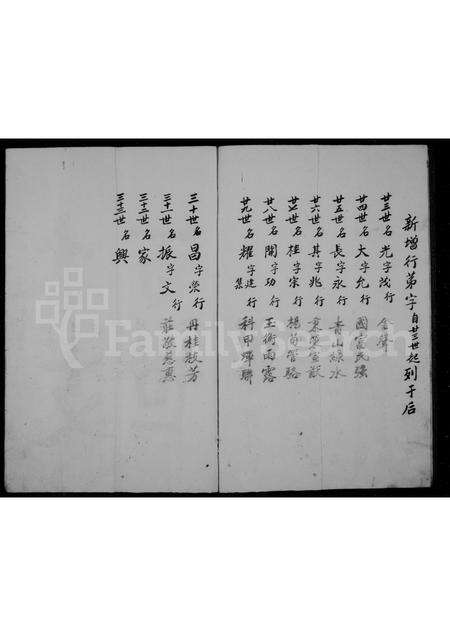 新增行第字自廿三世起列于后
廿三世名光字茂行
廿四世名大字允行 國富民強
廿五世名長字永行 青山綠水
廿六世名其字兆行
廿七世名桂字宗行
廿八世名開字功行 玉衡雨露
廿九世名耀字建行 科甲蟬聯
集
三十世名昌字榮行 丹桂枝芳
三十一世名振字文行
三十二世名家
三十三世名興
FamilySearch